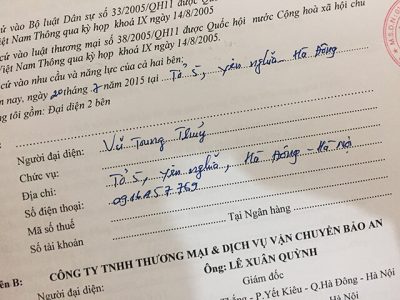 cứ vào Bộ luật Dân sự số 33/2005/QH11 được Quốc
Việt Nam Thông qua kỳ họp khoá IX ngày 14/8/2005
cứ vào luật thương mại số 38/2005/QH11 được Quốc hội nước Cộng hoà xã hội chủ
Việt Nam Thông qua kỳ họp khoá IX ngày 14/8/2005.
cứ vào nhu cầu và năng lực của cả hai bên;
nay, ngày 20 tháng 7 năm 2015 tại Tổ 5, yên nghĩa - Hà Đông
tôi gồm: Đại diện 2 bên
Người đại diện: Vũ Trung Thuỷ
Chức vụ:
Địa chỉ: Tổ 5, yên nghĩa, Hà Đông - Hà Nội
Số điện thoại:
Mã số thuế
Số tài khoản Tại Ngân hàng
B: CÔNG TY TNHH THƯƠNG MẠI & DỊCH VỤ VẬN CHUYỂN BẢO AN
Đại diện: Ông: LÊ XUÂN QUỲNH
Giám đốc
Thắng - P.Yết Kiêu - Q.Hà Đông - Hà Nội